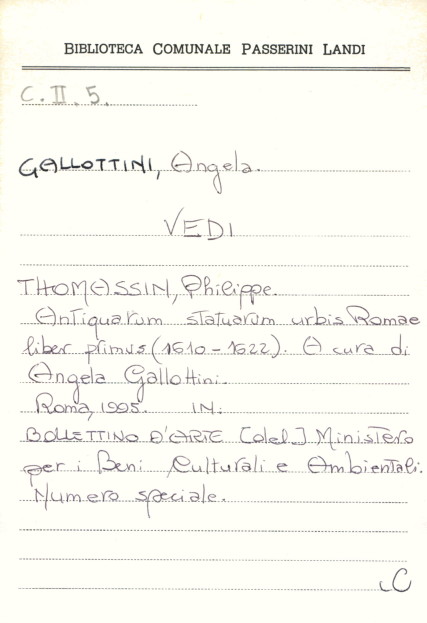 BIBLIOTECA COMUNALE PASSERINI LANDI
C. II. 5.
GALLOTTINI, Angela.
VEDI
THOMASSIN, Philippe.
Antiquarum statuarum urbis Romae
liber primus (1610-1622). A cura di
Angela Gallottini.
Roma, 1995. IN:
BOLLETTINO D'ARTE [del] Ministero
per i Beni Culturali e Ambientali.
Numero speciale.